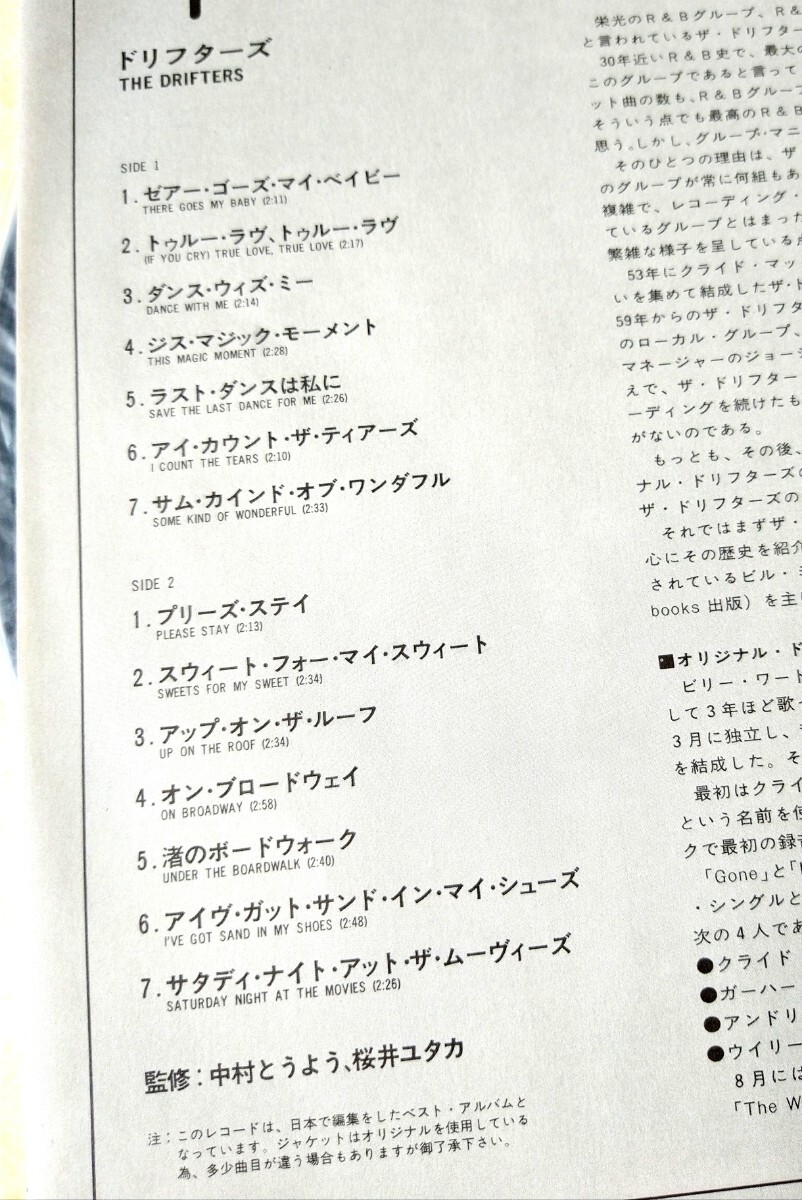 ドリフターズ
THE DRIFTERS
SIDE 1
1. ゼアー・ゴーズ・マイ・ベイビー
THERE GOES MY BABY (2:11)
2. トゥルー・ラヴ、トゥルー・ラヴ
(IF YOU CRY) TRUE LOVE, TRUE LOVE (2:17)
3. ダンス・ウィズ・ミー
DANCE WITH ME (2:14)
4. ジス・マジック・モーメント
THIS MAGIC MOMENT (2:28)
5. ラスト・ダンスは私に
SAVE THE LAST DANCE FOR ME (2:26)
6. アイ・カウント・ザ・ティアーズ
I COUNT THE TEARS (2:10)
7. サム・カインド・オブ・ワンダフル
SOME KIND OF WONDERFUL (2:33)
SIDE 2
1. プリーズ・ステイ
PLEASE STAY (2:13)
2. スウィート・フォー・マイ・スウィート
SWEETS FOR MY SWEET (2:34)
3. アップ・オン・ザ・ルーフ
UP ON THE ROOF (2:34)
4. オン・ブロードウェイ
ON BROADWAY (2:58)
5. 渚のボードウォーク
UNDER THE BOARDWALK (2:40)
6. アイヴ・ガット・サンド・イン・マイ・シューズ
I'VE GOT SAND IN MY SHOES (2:48)
7. サタディ・ナイト・アット・ザ・ムーヴィーズ
SATURDAY NIGHT AT THE MOVIES (2:26)
監修：中村とうよう、桜井ユタカ
注：このレコードは、日本で編集をしたベスト・アルバムと
なっています。ジャケットはオリジナルを使用している
為、多少曲目が違う場合もありますが御了承下さい。
栄光のR&Bグループ、R&
と言われているザ・ドリフター
30年近いR&B史で、最大の
このグループであると言って
ット曲の数も、R&Bグループ
そういう点でも最高のR&B
思う。しかし、グループ・マニ
そのひとつの理由は、ザ
のグループが常に何組もあ
複雑で、レコーディング・
ているグループとはまった
繁雑な様子を呈している点
53年にクライド・マッ
いを集めて結成したザ・ド
59年からのザ・ドリフタ
のローカル・グループ、
マネージャーのジョージ
えで、ザ・ドリフター
ーディングを続けたも
がないのである。
もっとも、その後、
ナル・ドリフターズの
ザ・ドリフターズの
それではまずザ・
心にその歴史を紹介
されているビル・
books 出版）を主
■オリジナル・ド
ビリー・ワート
して3年ほど歌
3月に独立し、
を結成した。そ
最初はクライ
という名前を使
クで最初の録音
「Gone」と「
・シングルと
次の4人であ
●クライド
●ガーハー
●アンドリ
●ウイリー
8月には
「The W